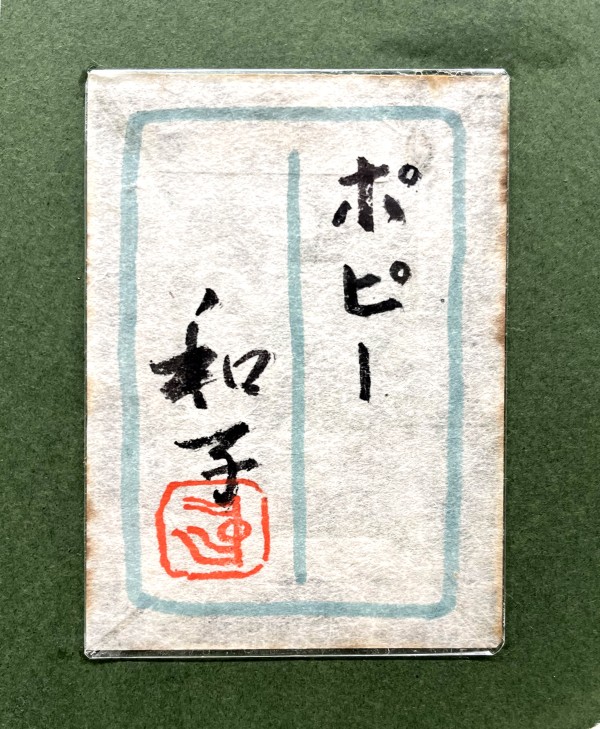 ポピー
和子